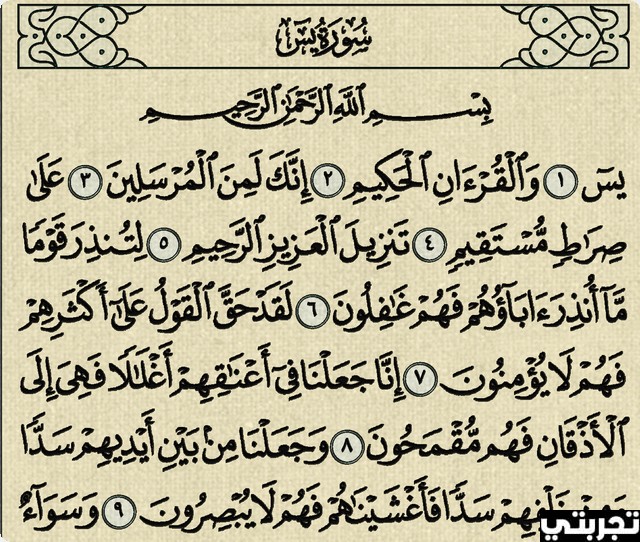 سُورَةُ يسٓ
بِسْمِ ٱللَّهِ ٱلرَّحْمَٰنِ ٱلرَّحِيمِ
يسٓ ١ وَٱلْقُرْءَانِ ٱلْحَكِيمِ ٢ إِنَّكَ لَمِنَ ٱلْمُرْسَلِينَ ٣ عَلَىٰ
صِرَٰطٍ مُّسْتَقِيمٍ ٤ تَنزِيلَ ٱلْعَزِيزِ ٱلرَّحِيمِ ٥ لِتُنذِرَ قَوْمًا
مَّآ أُنذِرَ ءَابَآؤُهُمْ فَهُمْ غَٰفِلُونَ ٦ لَقَدْ حَقَّ ٱلْقَوْلُ عَلَىٰٓ أَكْثَرِهِمْ
فَهُمْ لَا يُؤْمِنُونَ ٧ إِنَّا جَعَلْنَا فِىٓ أَعْنَٰقِهِمْ أَغْلَٰلًا فَهِىَ إِلَى
ٱلْأَذْقَانِ فَهُم مُّقْمَحُونَ ٨ وَجَعَلْنَا مِنۢ بَيْنِ أَيْدِيهِمْ سَدًّا
سَدًّا فَأَغْشَيْنَٰهُمْ فَهُمْ لَا يُبْصِرُونَ ٩ وَسَوَآءٌ
تجربتي